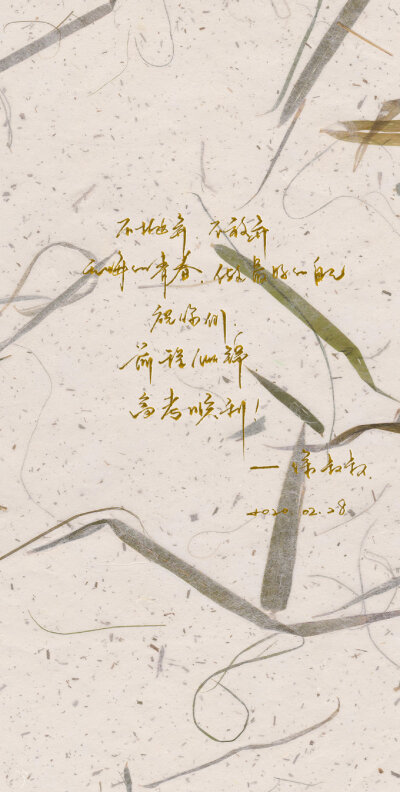 不抛弃 不放弃
的青春.做最好的自己
祝你们,
前程似锦
高考顺利!
一 叔叔
2020.02.28